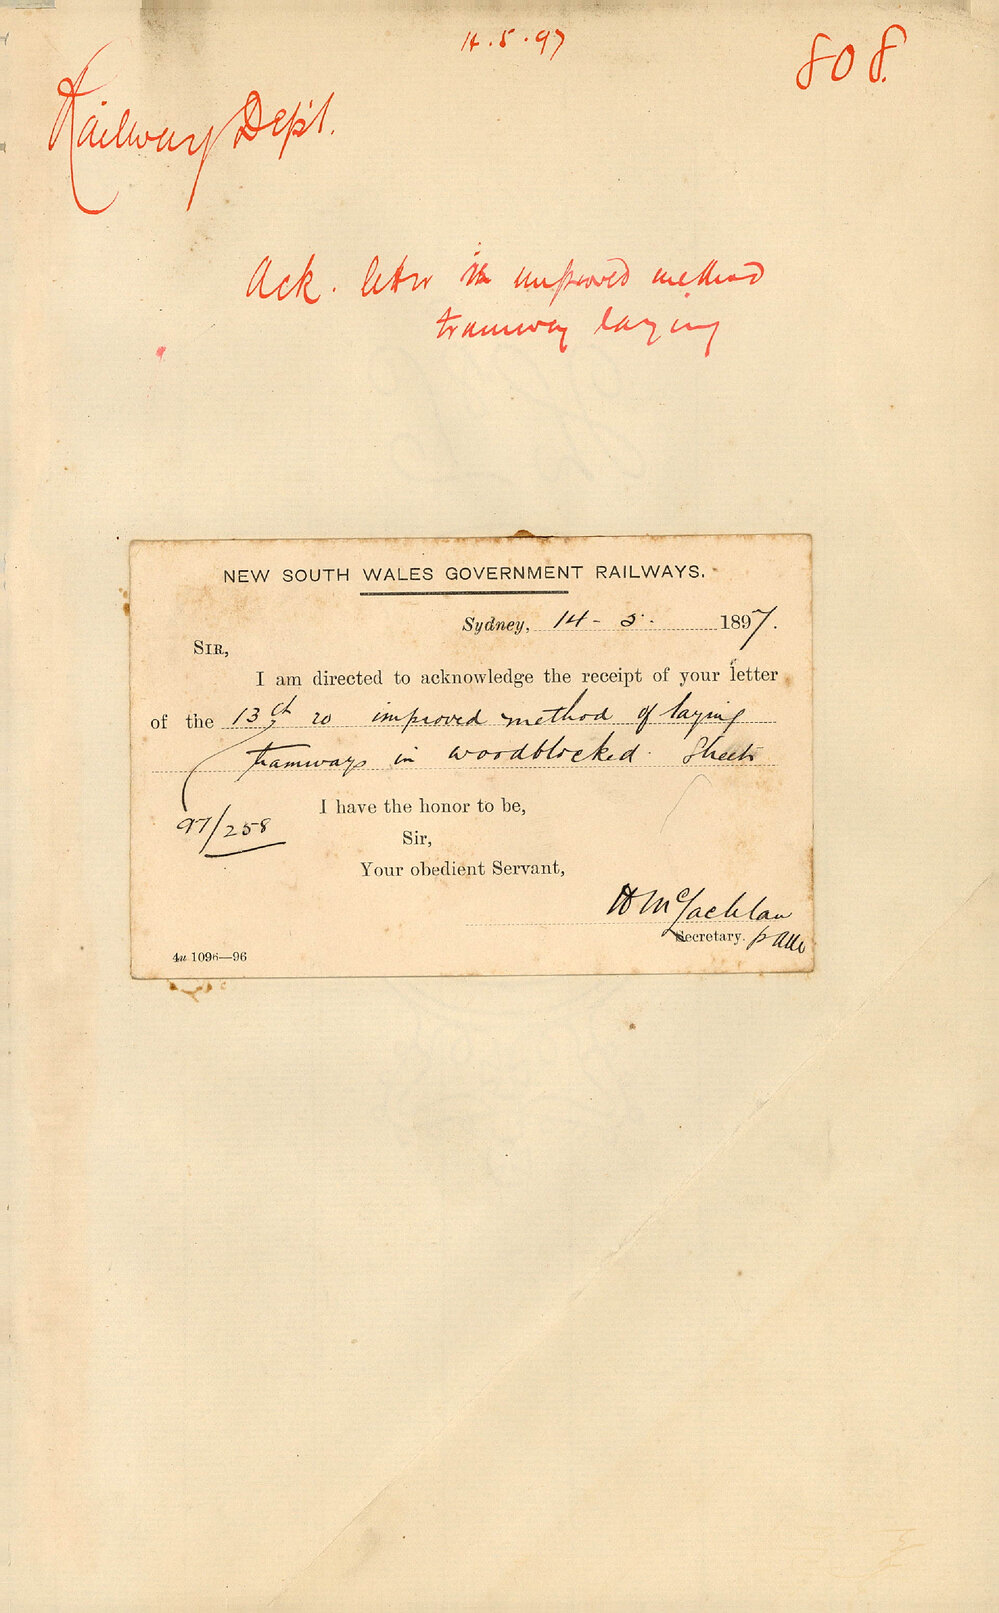 14.5.97
808.
Railway Dep't.
Ack. letter re improved method
tramway laying
NEW SOUTH WALES GOVERNMENT RAILWAYS.
Sydney, 14 - 5. 1897.
SIR,
I am directed to acknowledge the receipt of your letter
of the 13th re improved method of laying
tramways in woodblocked Streets
97/258
I have the honor to be,
Sir,
Your obedient Servant,
H McLachlan
Secretary.
4u 1096—96